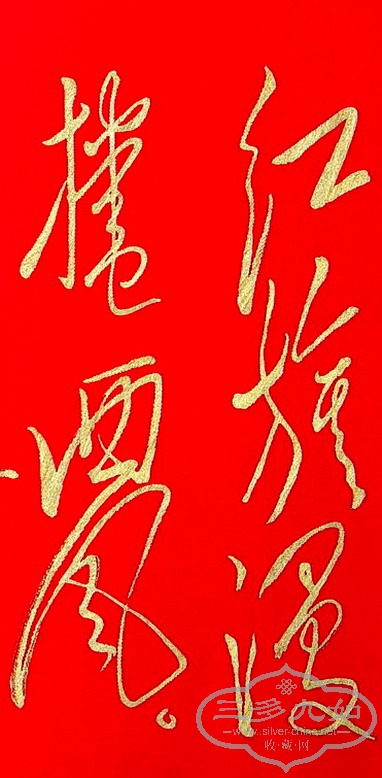 红旗漫
捲西风。
三多九如
www.silver-china.net
收藏网